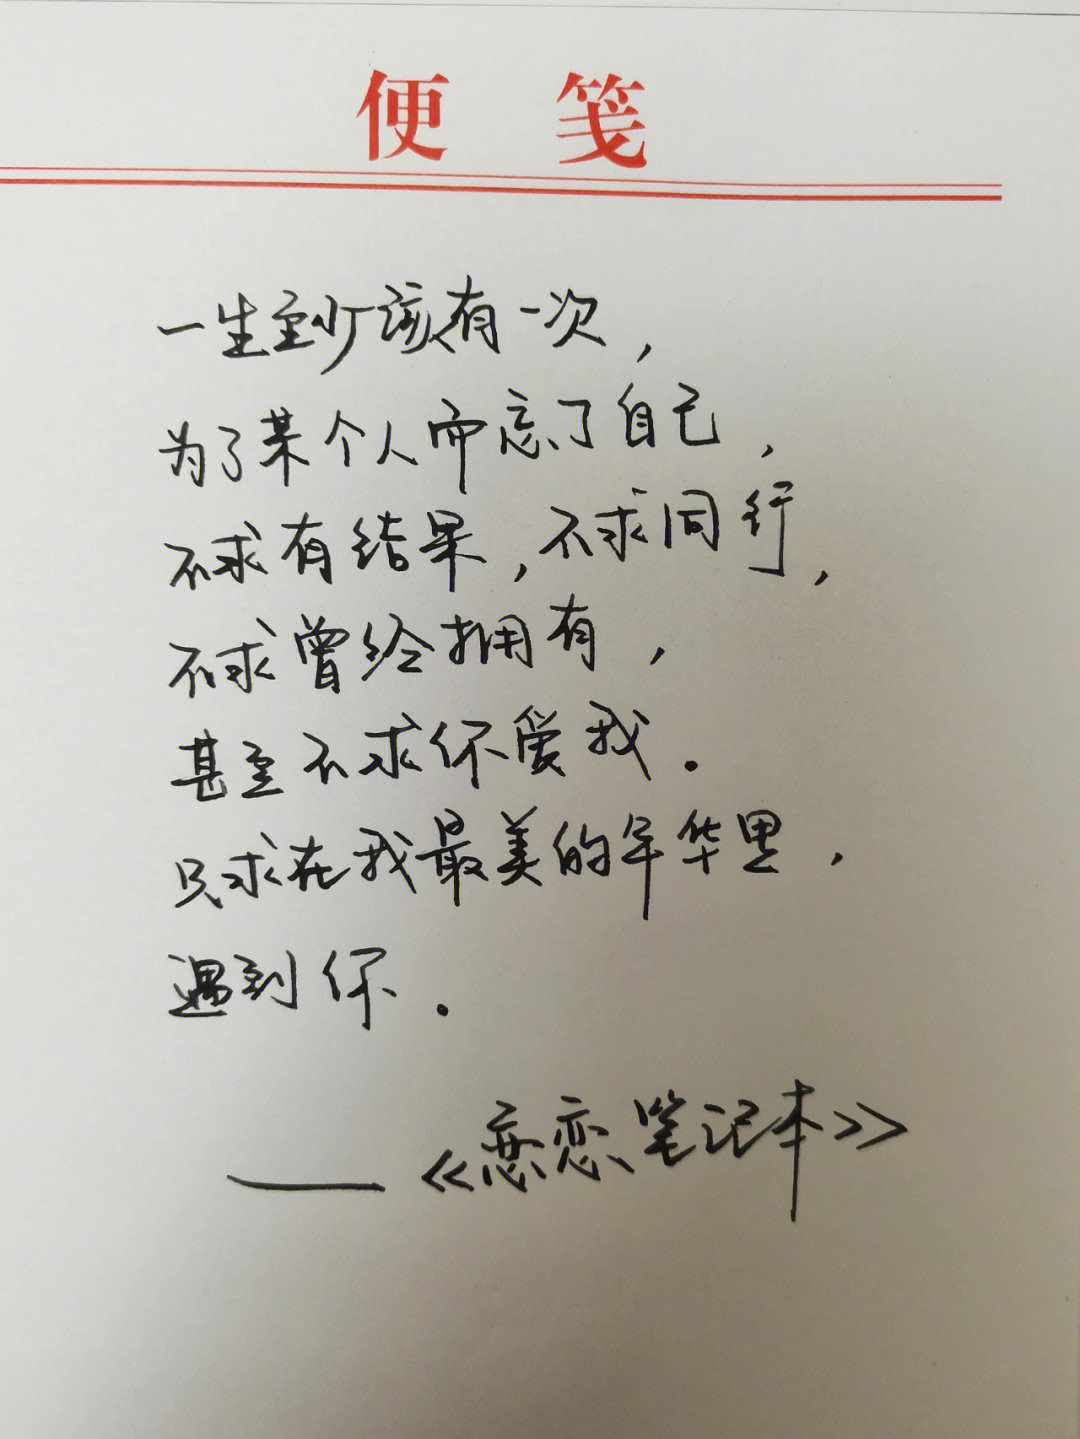 便笺
一生至少该有一次，
为了某个人而忘了自己，
不求有结果，不求同行，
不求曾经拥有，
甚至不求你爱我．
只求在我最美的年华里，
遇到你．
——《恋恋笔记本》